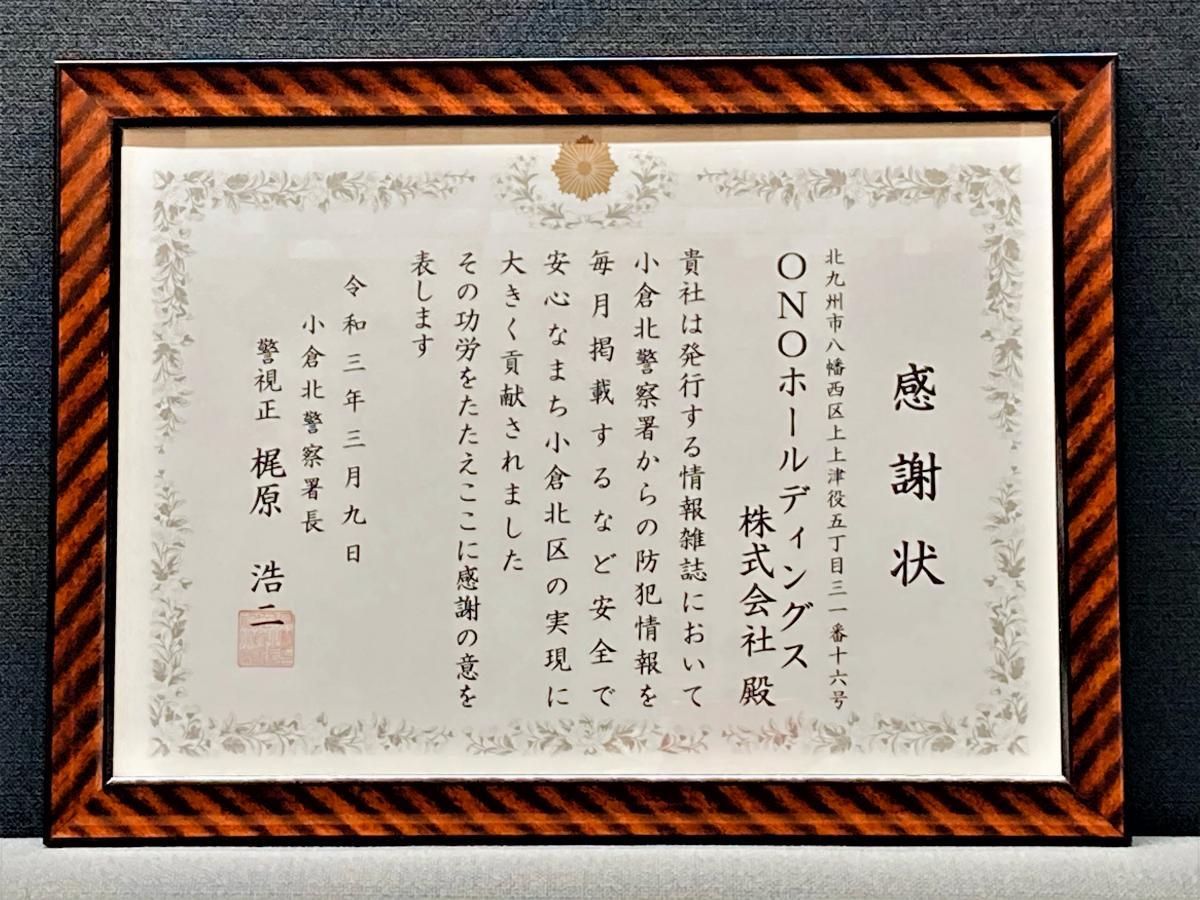 感謝状
北九州市八幡西区上上津役五丁目三一番十六号
ONOホールディングス
株式会社 殿
貴社は発行する情報雑誌において
小倉北警察署からの防犯情報を
毎月掲載するなど安全で
安心なまち小倉北区の実現に
大きく貢献されました
その功労をたたえここに感謝の意を
表します
令和三年三月九日
小倉北警察署長
警視正 梶原 浩二